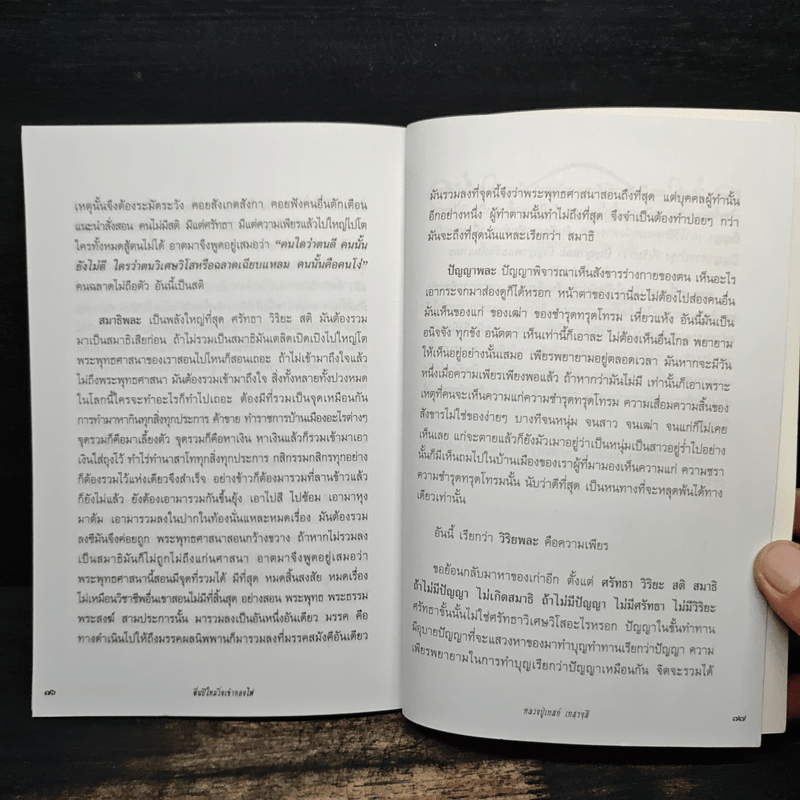 เหตุนั้นจึงต้องระมัดระวัง คอยสังเกตสังกา คอยฟังคนอื่นตักเตือน
แนะนำสั่งสอน คนไม่มีสติ มีแต่ศรัทธา มีแต่ความเพียรแล้วไปใหญ่ไปโต
ใครทั้งหมดสู้ตนไม่ได้ อาตมาจึงพูดอยู่เสมอว่า "คนใดว่าตนดี คนนั้น
ยังไม่ดี ใครว่าตนวิเศษวิโสหรือฉลาดเฉียบแหลม คนนั้นคือคนโง่"
คนฉลาดไม่ถือตัว อันนี้เป็นสติ
สมาธิพละ เป็นพลังใหญ่ที่สุด ศรัทธา วิริยะ สติ มันต้องรวม
มาเป็นสมาธิเสียก่อน ถ้าไม่รวมเป็นสมาธิมันเตลิดเปิดเปิงไปใหญ่โต
พระพุทธศาสนาของเราสอนไปไหนก็สอนเถอะ ถ้าไม่เข้ามาถึงใจแล้ว
ไม่ถึงพระพุทธศาสนา มันต้องรวมเข้ามาถึงใจ สิ่งทั้งหลายทั้งปวงหมด
ในโลกนี้ใครจะทำอะไรก็ทำไปเถอะ ต้องมีที่รวมเป็นจุดเหมือนกัน
การทำมาหากินทุกสิ่งทุกประการ ค้าขาย ทำราชการบ้านเมืองอะไรต่างๆ
จุดรวมก็คือมาเลี้ยงตัว จุดรวมก็คือหาเงิน หาเงินแล้วก็รวมเข้ามาเอา
เงินใส่ถุงไว้ ทำไร่ทำนาสาโททุกสิ่งทุกประการ กสิกรรมกสิกรทุกอย่าง
ก็ต้องรวมไว้แห่งเดียวจึงสำเร็จ อย่างข้าวก็ต้องมารวมที่ลานข้าวแล้วก็
ก็ยังไม่แล้ว ยังต้องเอามารวมกันขึ้นยุ้ง เอาไปสี ไปซ้อม เอามาหุง
มาต้ม เอามารวมลงในปากในท้องนั่นแหละหมดเรื่อง มันต้องรวม
ลงซีมันจึงค่อยถูก พระพุทธศาสนาสอนกว้างขวาง ถ้าหากไม่รวมลง
เป็นสมาธิมันก็ไม่ถูกไม่ถึงแก่นศาสนา อาตมาจึงพูดอยู่เสมอว่า
พระพุทธศาสนานี้สอนมีจุดที่รวมได้ มีที่สุด หมดสิ้นสงสัย หมดเรื่อง
ไม่เหมือนวิชาชีพอื่นเขาสอนไม่มีที่สิ้นสุด อย่างสอน พระพุทธ พระธรรม
พระสงฆ์ สามประการนั้น มารวมลงเป็นอันหนึ่งอันเดียว มรรค คือ
ทางดำเนินไปให้ถึงมรรคผลนิพพานก็มารวมลงที่มรรคสมังคีอันเดียว
๗๖
ขี่หลังวิ่งเข้ากองไฟ
มันรวมลงที่จุดนี้จึงว่าพระพุทธศาสนาสอนถึงที่สุด แต่บุคคลผู้ทำนั้น
อีกอย่างหนึ่ง ผู้ทำตามนั้นทำไม่ถึงที่สุด จึงจำเป็นต้องทำบ่อยๆ กว่า
มันจะถึงที่สุดนั่นแหละเรียกว่า สมาธิ
ปัญญาพละ ปัญญาพิจารณาเห็นสังขารร่างกายของตน เห็นอะไร
เอากระจกมาส่องดูก็ได้หรอก หน้าตาของเรานี่ละไม่ต้องไปส่องคนอื่น
มันเห็นของแก่ ของเฒ่า ของชำรุดทรุดโทรม เหี่ยวแห้ง อันนี้มันเป็น
อนิจจัง ทุกขัง อนัตตา เห็นเท่านี้ก็เอาละ ไม่ต้องเห็นอื่นไกล พยายาม
ให้เห็นอยู่อย่างนั้นเสมอ เพียรพยายามอยู่ตลอดเวลา มันหากจะมีวัน
หนึ่งเมื่อความเพียรเพียงพอแล้ว ถ้าหากว่ามันไม่มี เท่านั้นก็เอาเพราะ
เหตุที่คนจะเห็นความแก่ความชำรุดทรุดโทรม ความเสื่อมความสิ้นของ
สังขารไม่ใช่ของง่ายๆ บางทีจนหนุ่ม จนสาว จนเฒ่า จนแก่ก็ไม่เคย
เห็นเลย แก่จะตายแล้วก็ยังมัวเมาอยู่ว่าเป็นหนุ่มเป็นสาวอยู่ร่ำไปอย่าง
นั้นก็มีเห็นถมไปในบ้านเมืองของเราผู้ที่มามองเห็นความแก่ ความชรา
ความชำรุดทรุดโทรมนั้น นับว่าดีที่สุด เป็นหนทางที่จะหลุดพ้นได้ทาง
เดียวเท่านั้น
อันนี้ เรียกว่า วิริยพละ คือความเพียร
ขอย้อนกลับมาหาของเก่าอีก ตั้งแต่ ศรัทธา วิริยะ สติ สมาธิ
ถ้าไม่มีปัญญา ไม่เกิดสมาธิ ถ้าไม่มีปัญญา ไม่มีศรัทธา ไม่มีวิริยะ
ศรัทธาขั้นนั้นไม่ใช่ศรัทธาวิเศษวิโสอะไรหรอก ปัญญาในขั้นทำทาน
มีอุบายปัญญาที่จะแสวงหาของมาทำบุญทำทานเรียกว่าปัญญา ความ
เพียรพยายามในการทำบุญเรียกว่าปัญญาเหมือนกัน จิตจะรวมได้
หลวงปู่เทสก์ เทสรังสี
๗๗